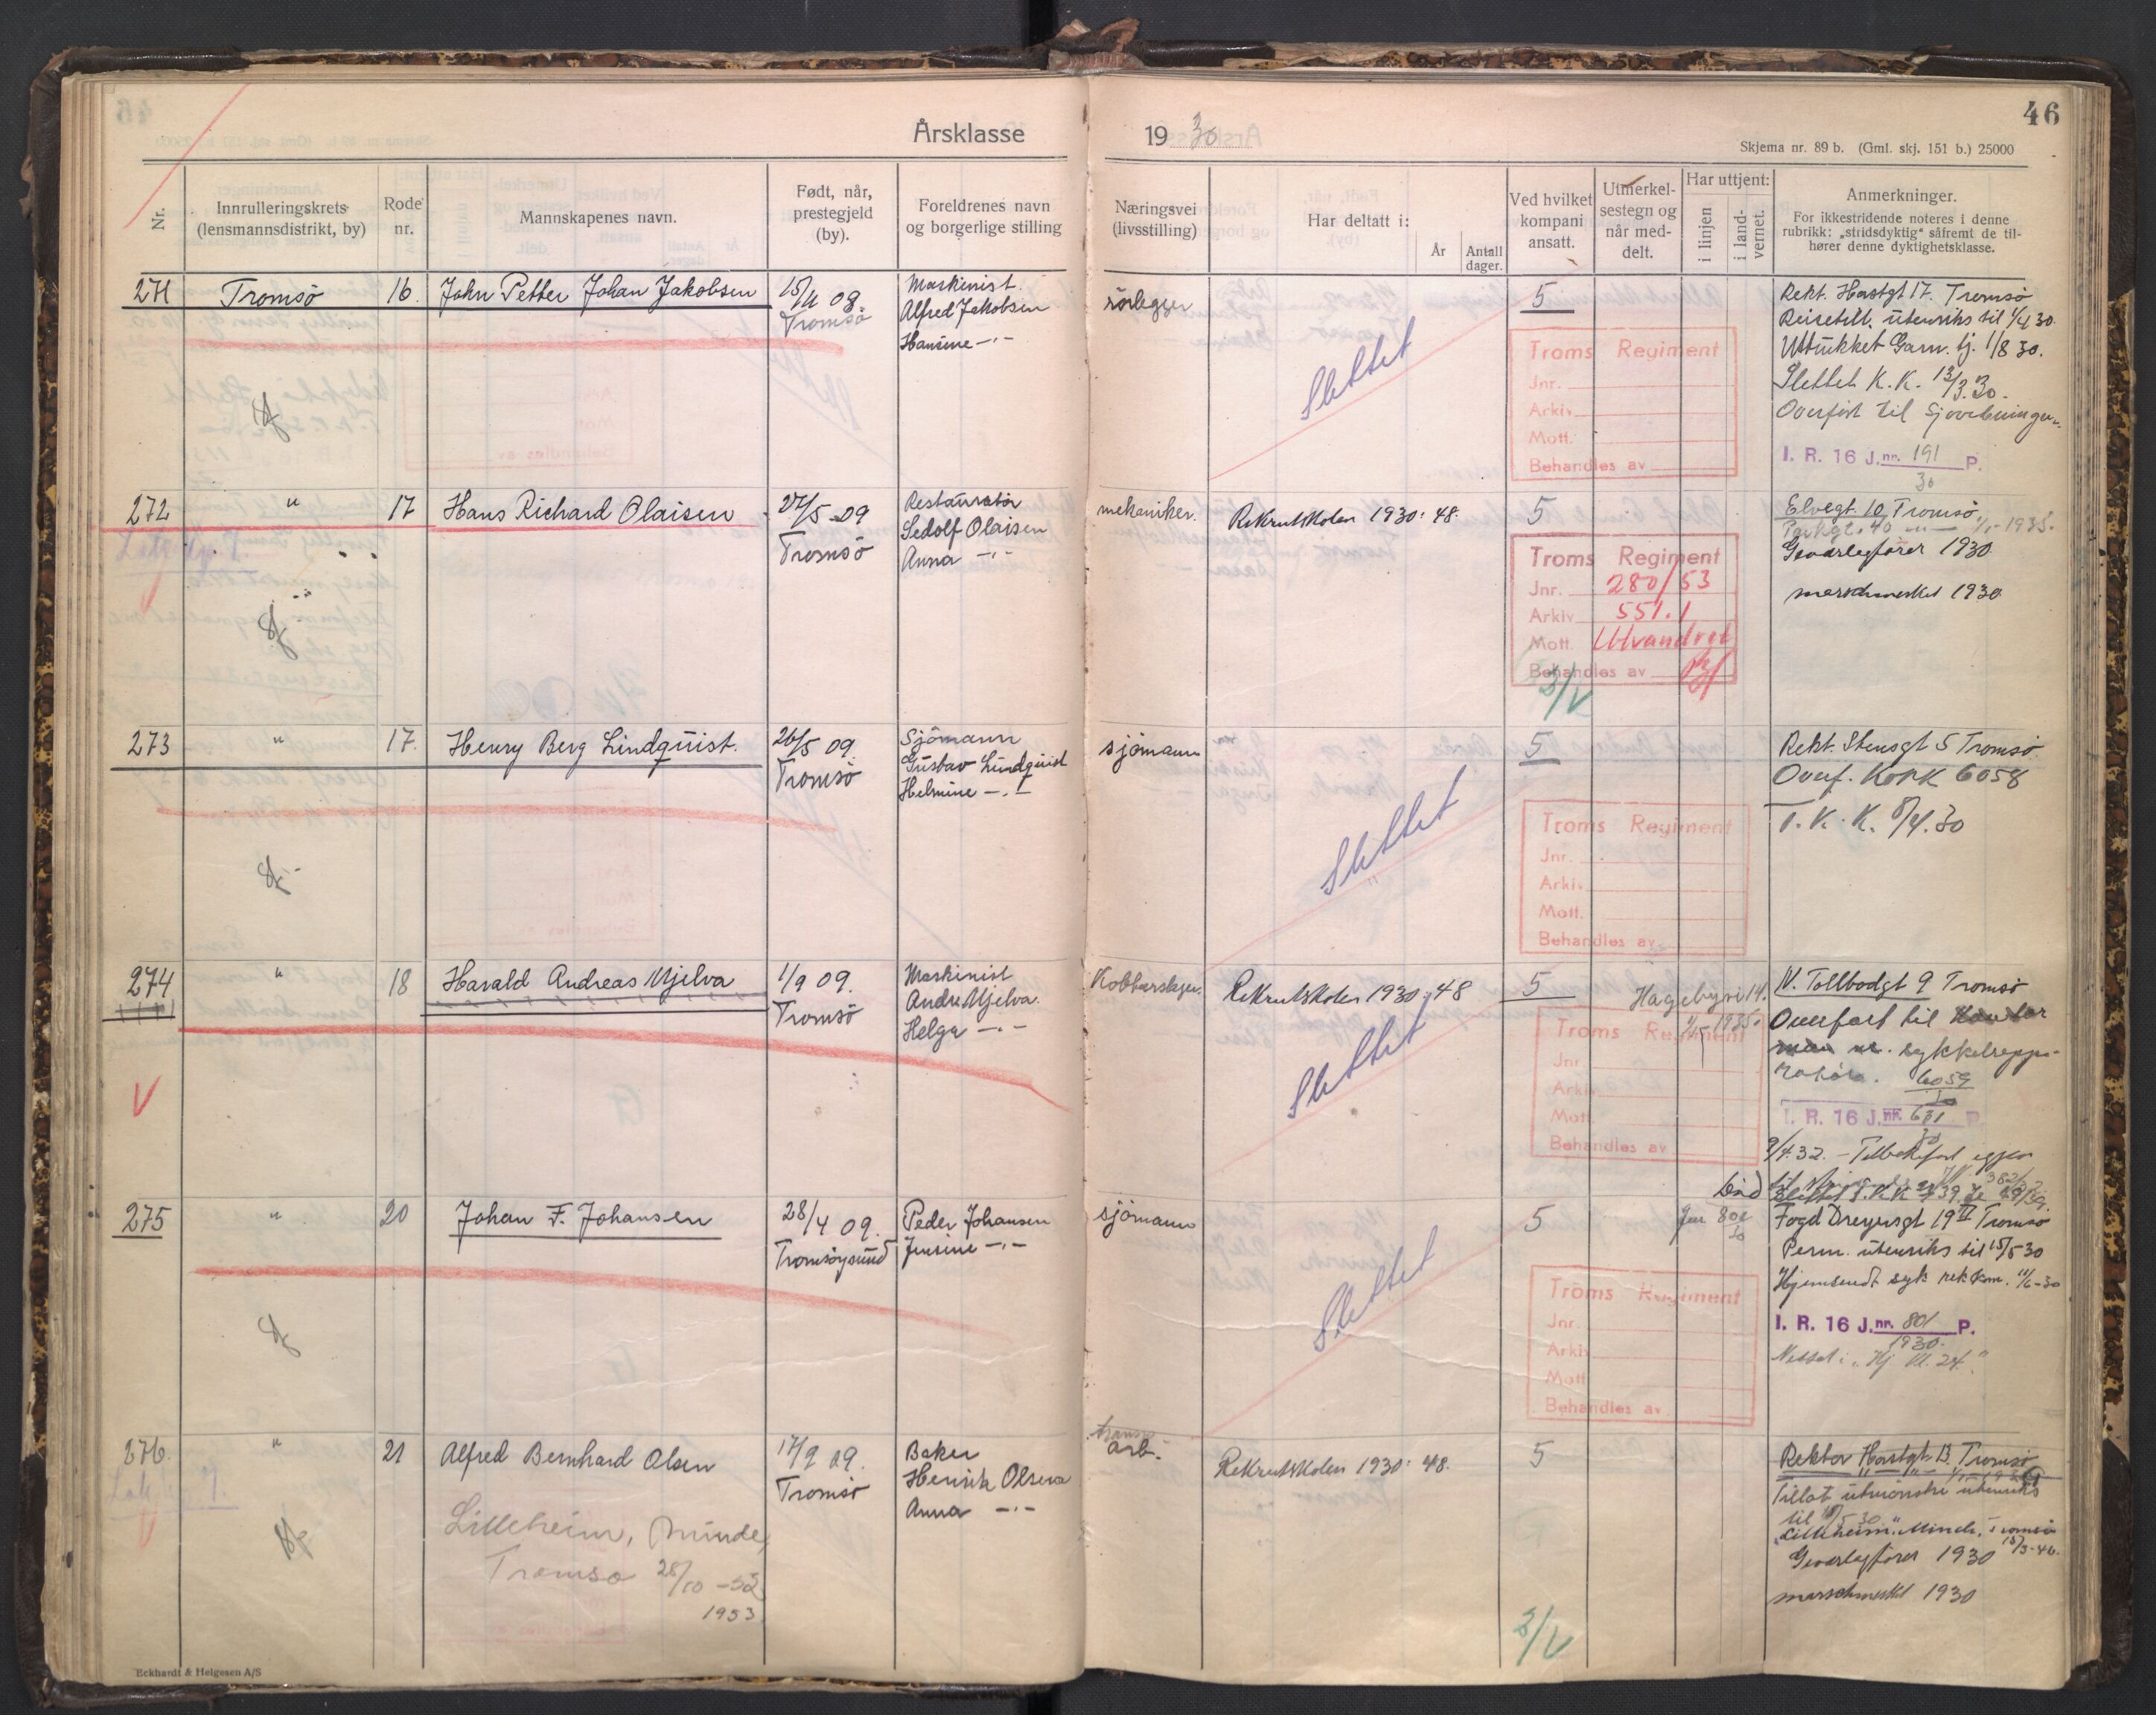 46
Årsklasse 1930
Skjema nr. 89 b. (Gml. skj. 151 b.) 25000
Nr.
Innrulleringskrets
(lensmannsdistrikt, by)
Rode
nr.
Mannskapenes navn.
Født, når,
prestegjeld
(by).
Foreldrenes navn
og borgerlige stilling
Næringsvei
(livsstilling)
Har deltatt i:
År
Antall
dager.
Ved hvilket
kompani
ansatt.
Utmerkel-
sestegn og
når med-
delt.
Har uttjent:
i linjen
i land-
vernet.
Anmerkninger.
For ikkestridende noteres i denne
rubrikk: „stridsdyktig“ såfremt de til-
hører denne dyktighetsklasse.
271 Tromsö 16. John Petter Johan Jakobsen
Tromsö
Maskinist.
Alfred Jakobsen
Hansine -"-
rörlegger
Slettet
5
Troms Regiment
Jnr.
Arkiv
Mott.
Behandles av
Rekt. Horstgt 17. Tromsö
Reisetill. utenriks til 1/4 30.
Uttrukket Garn. tj. 1/8 30.
Slettet K.K. 13/3.30.
Overfört til Sjövebningen.
I. R. 16 J.nr. 191 P.
30
272 " 17 Hans Richard Olaisen
27/5 -09
Tromsö
Restauratör
Sedolf Olaisen
Anna -"-
mekaniker.
Rekrutskolen 1930: 48.
5
Troms Regiment
Jnr. 280/53
Arkiv 551.1
Mott. Utvandret
Behandles av
3/V
Elvegt. 10, Tromsö.
Parkgt. 40 -"- 1/1-1935.
Geværlagförer 1930
marschmerket 1930
273 " 17. Henry Berg Lindquist.
26/5 09.
Tromsö
Sjömann
Gustav Lindquist
Helmine -"-
sjömann
Slettet
5
Troms Regiment
Jnr.
Arkiv
Mott.
Behandles av
Rekt. Stensgt 5 Tromsö
Overf. KoPK 6058
T. K. K. 8/4.30
274 " 18 Harald Andreas Mjelva
1/9 09.
Tromsö
Maskinist
Andr. Mjelva
Helga -"-
Kobberslager.
Rekrutskolen 1930: 48
Slettet
5
Hagebyvei 14.
1/5 1935.
Troms Regiment
Jnr.
Arkiv
Mott.
Behandles av
N. Tollbodgt 9 Tromsö
Overfört til
sykkelreppa-
ratör. 6059
30
I. R. 16 J.nr. 631 P.
30
9/4.32. - Tilbakefört igjen
275 " 20 Johan F. Johansen
28/4 09.
Tromsöysund
Peder Johansen
Jensine -"-
sjömann
Slettet
5
Jnr 801
30
Troms Regiment
Jnr.
Arkiv
Mott
Behandles av
Fogd Dreyersgt 19 II Tromsö
Perm. utenriks til 15/5 30
Hjemsendt syk rek.kom. 11/6-30
I. R. 16 J.nr. 801 P.
1930.
276. " 21 Alfred Bernhard Olsen
17/9 09.
Tromsö
Baker
Henrik Olsen
Anna -"-
Lilleheim, Minde,
Tromsø 28/10 -52
1953
arb.
Rekrutskolen 1930: 48.
5
3/V
Rektor Horstgt 13. Tromsö
Tillat utmönstre utenriks
til 15/5 30
"Lilleheim" Minde, Tromsö
15/3-46.
Geværlagförer 1930
marschmerket 1930
Eckhardt & Helgesen A/S